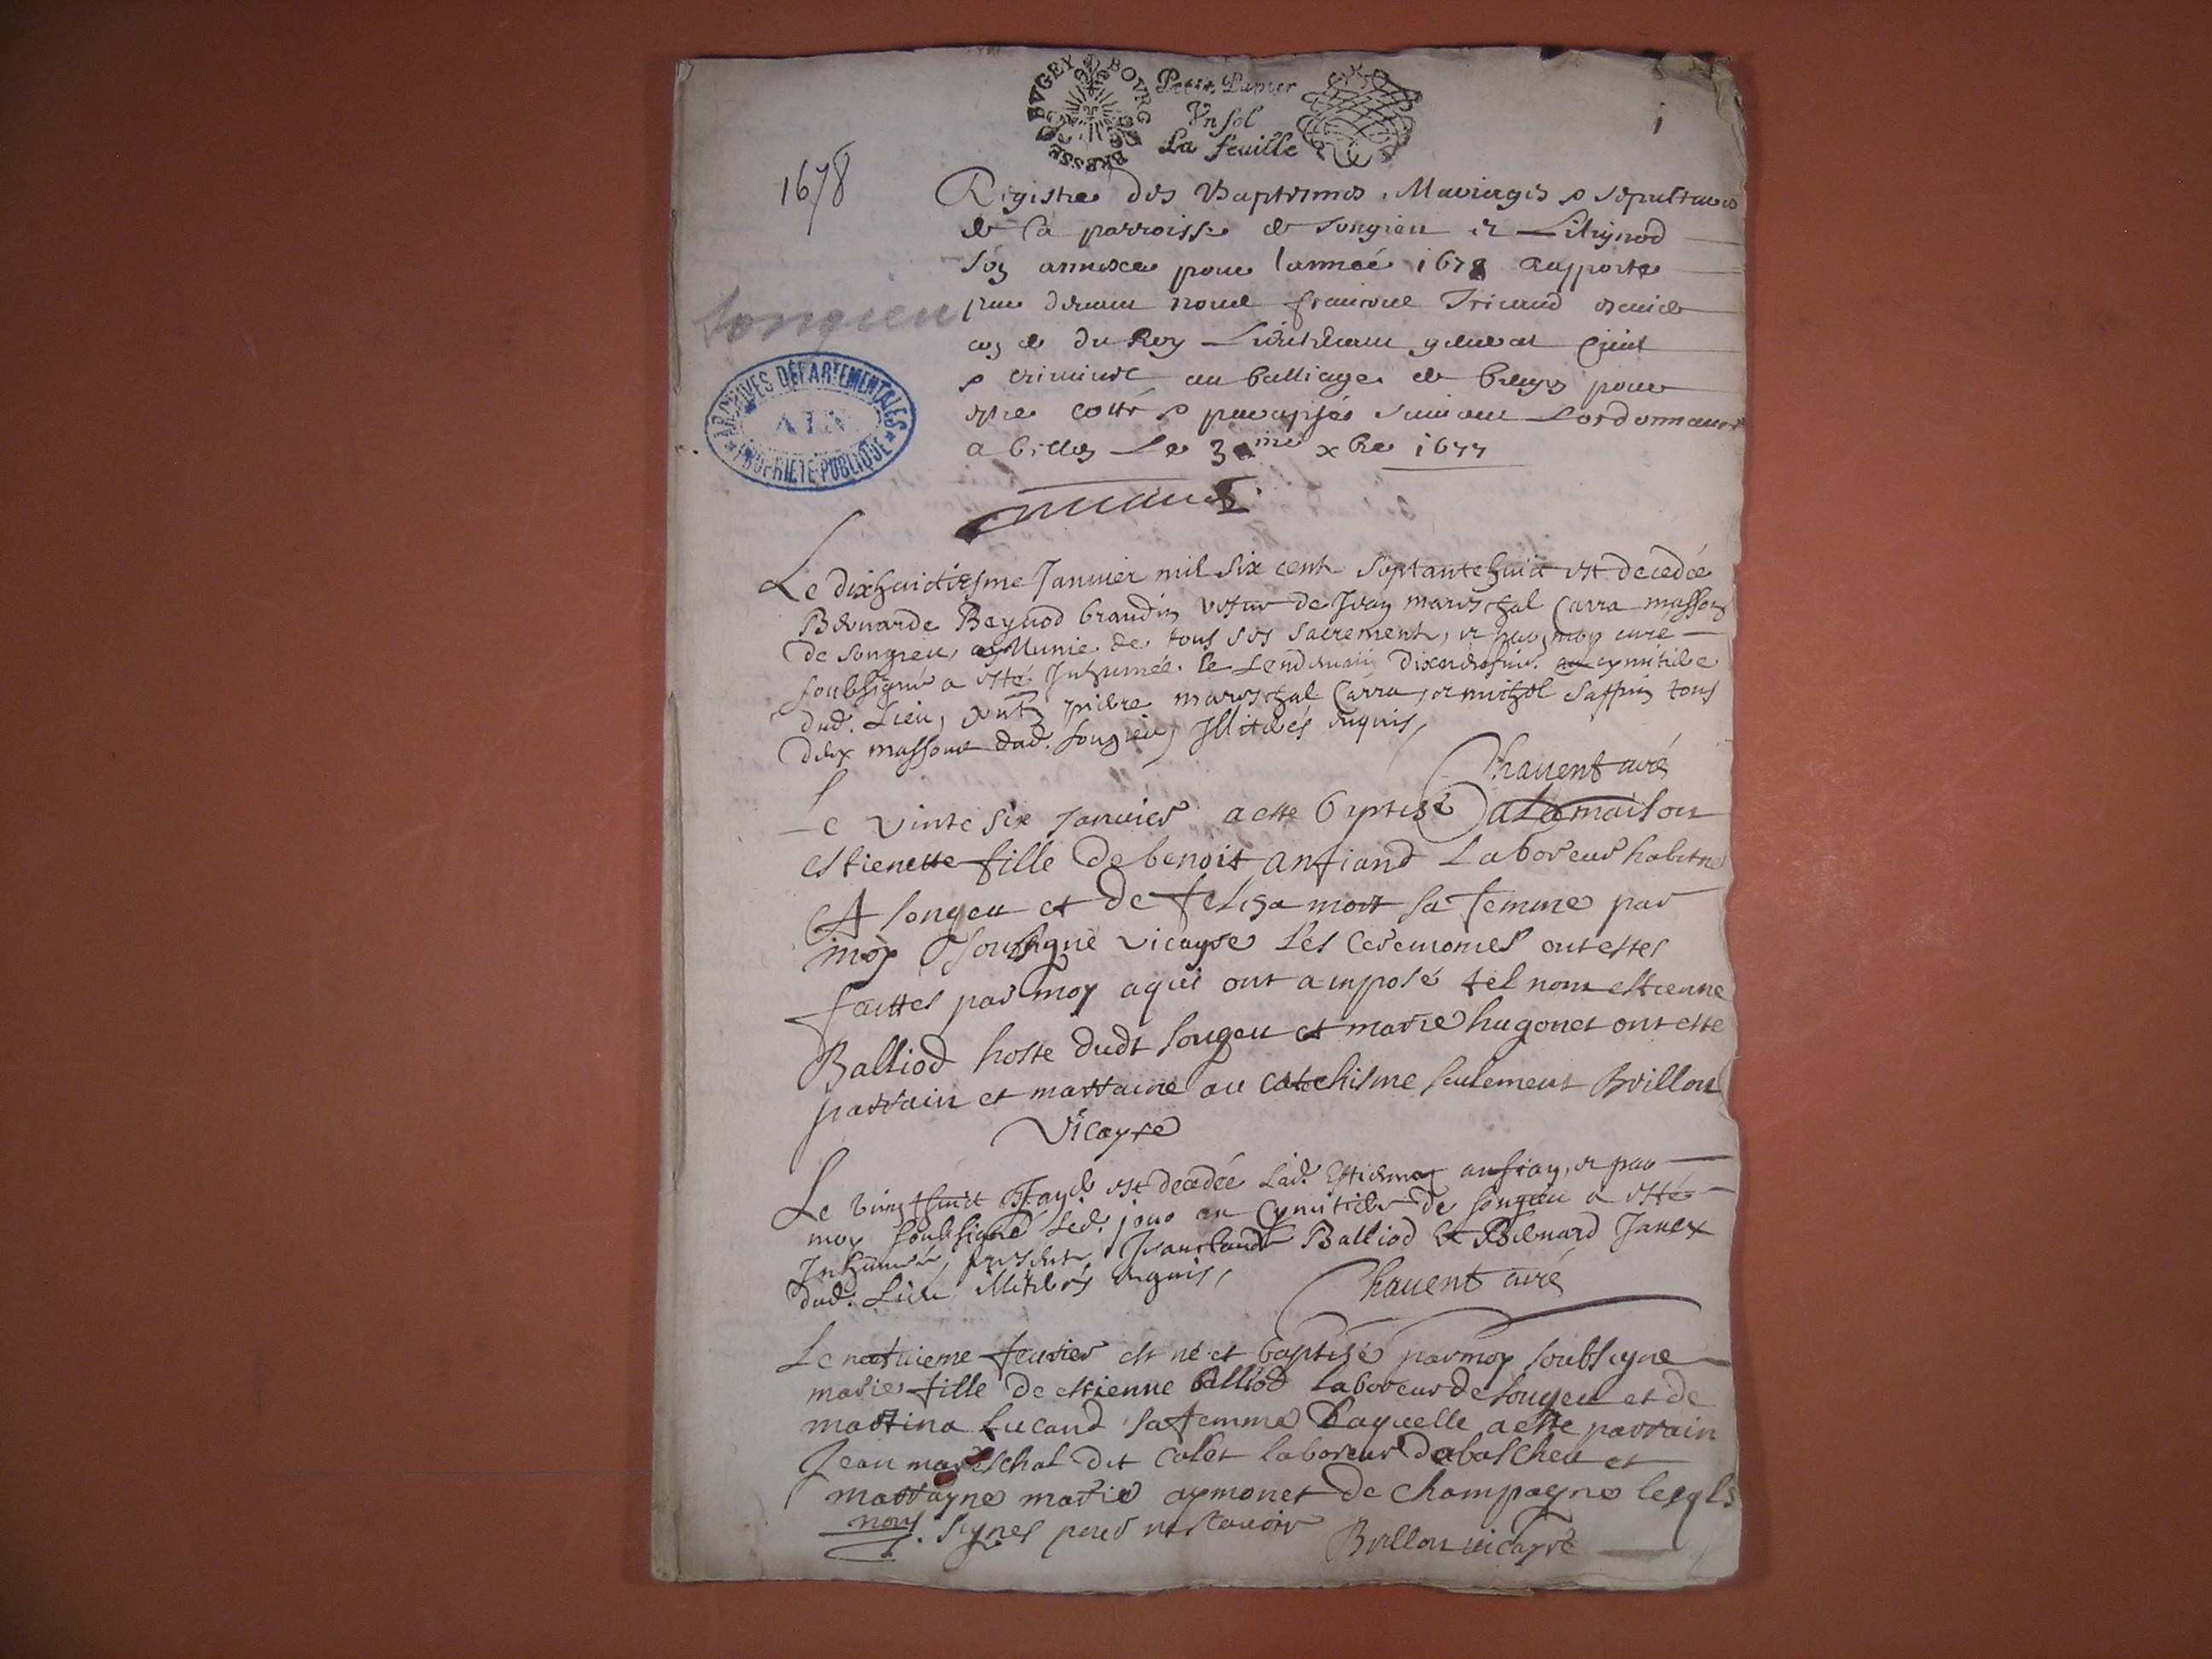 BVGEY BOVRG BRESSE
Petit Papier
Vn sol
La feuille
i
1678
Registre des Baptesmes, Mariages & sepultures
de la parroisse de songieu et Lilignod
son annexe pour l'année 1678 rapporté
par devant nous francois Tricaud
du Roy Lieutenant general Civil
& criminel au balliage de beugey pour
estre cotté & paraphé suivant Lordonnance
a belley Le 3 xbre 1677
songieu
ARCHIVES DÉPARTEMENTALES
AIN
PROPRIÉTÉ PUBLIQUE
Le dixhuictiesme Januier mil six cent septantehuict est decedée
Bernarde Beynod brandin vefue de Jean mareschal Carra masson
de songieu, Munie de tous ses sacrements, et par moy curé
soubsigné a esté Inhumée le Lendemain au cymitiere
dud. Lieu, pierre mareschal Carra, et michel sappin tous
deux massons dud. songieu, Illiterés enquis,
Chauent curé
Le vinte six januier a este baptisé A La maison
estienette fille de benoit anfiand Laboreur habitne
A songeu et de feliza mort sa femme par
moy soubsigne vicayre Les Ceremonies ont estes
faittes par moy a qui ont a imposé tel nom estienne
Balliod hoste dudt songeu et marie hugonet ont este
parrain et marraine au catechisme seulement Brillon
Vicayre
Le vingthuict Janv. est decedée Lad. Estienne anfian, et par
moy soubsigné led. jour au Cymitiere de songieu a esté
Inhumée, presents, Jean claude Balliod & Bernard Janex
dud. Lieu Illiterés enquis,
Chauent curé
Le neufuieme feurier est né et baptisé par moy soubsigne
marie fille de estienne Balliod Laboreur de songeu et de
martina Lucand sa femme Laquelle a este parrain
Jean mareschal dit colet laboreur de bascheu et
marrayne marie aymonet de champagne lesqls
nons. signes pour ne scauoir
Brillon vicayre